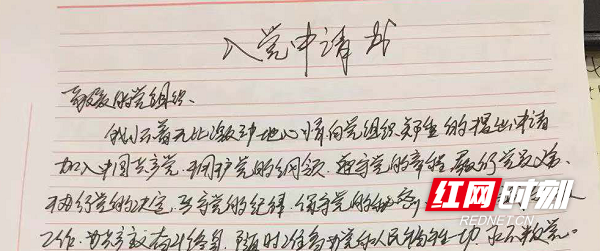 入党申请书
敬爱的党组织、
我怀着无比激动地心情向党组织郑重的提出申请
加入中国共产党,拥护党的纲领,遵守党的章程履行党员义务、
执行党的决定,严守党的纪律,保守党的秘密,
工作,为共产主义奋斗终身,随时准备为党和人民牺牲一切,永不叛党。
红网时刻
REDNET.CN